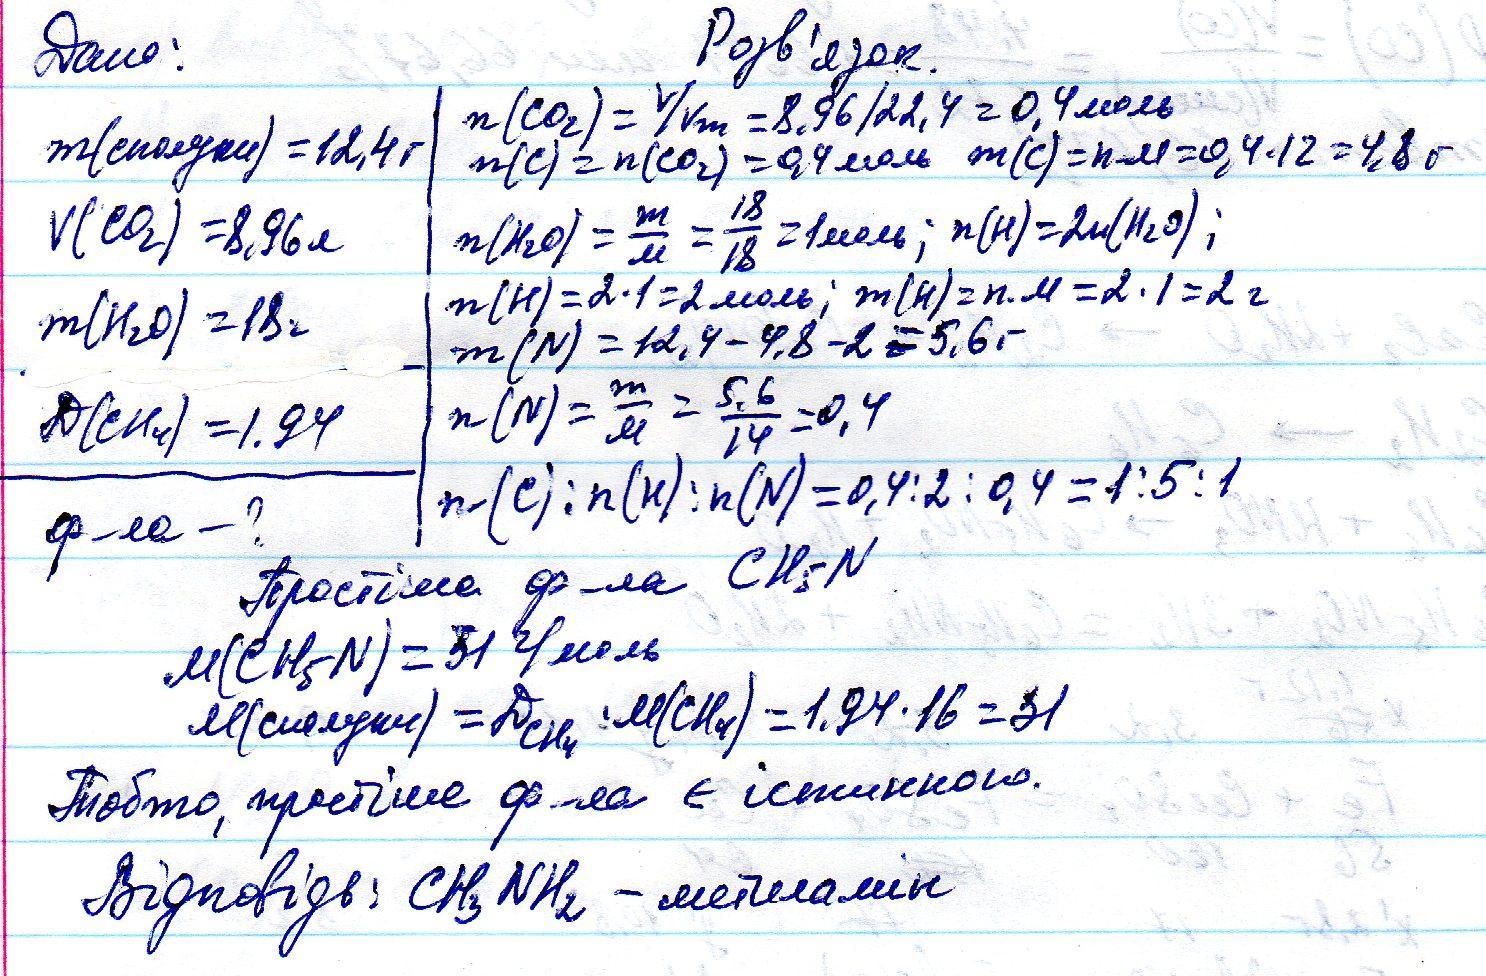 Дано:
Розв'язок.
m(сполуки) = 12,4 г
V(CO2) = 8,96 л
m(H2O) = 18 г
D(CH4) = 1.94
ф-ла - ?
n(CO2) = V/Vm = 8,96/22,4 = 0,4 моль
n(C) = n(CO2) = 0,4 моль m(C) = n·M = 0,4·12 = 4,8 г
n(H2O) = m/M = 18/18 = 1 моль; n(H) = 2n(H2O);
n(H) = 2·1 = 2 моль; m(H) = n·M = 2·1 = 2 г
m(N) = 12,4 - 4,8 - 2 = 5,6 г
n(N) = m/M = 5.6/14 = 0,4
n(C) : n(H) : n(N) = 0,4 : 2 : 0,4 = 1 : 5 : 1
Простіша ф-ла CH5N
M(CH5N) = 31 г/моль
M(сполуки) = DCH4 · M(CH4) = 1.94·16 = 31
Тобто, простіша ф-ла є істинною.
Відповідь: CH3NH2 - метиламін